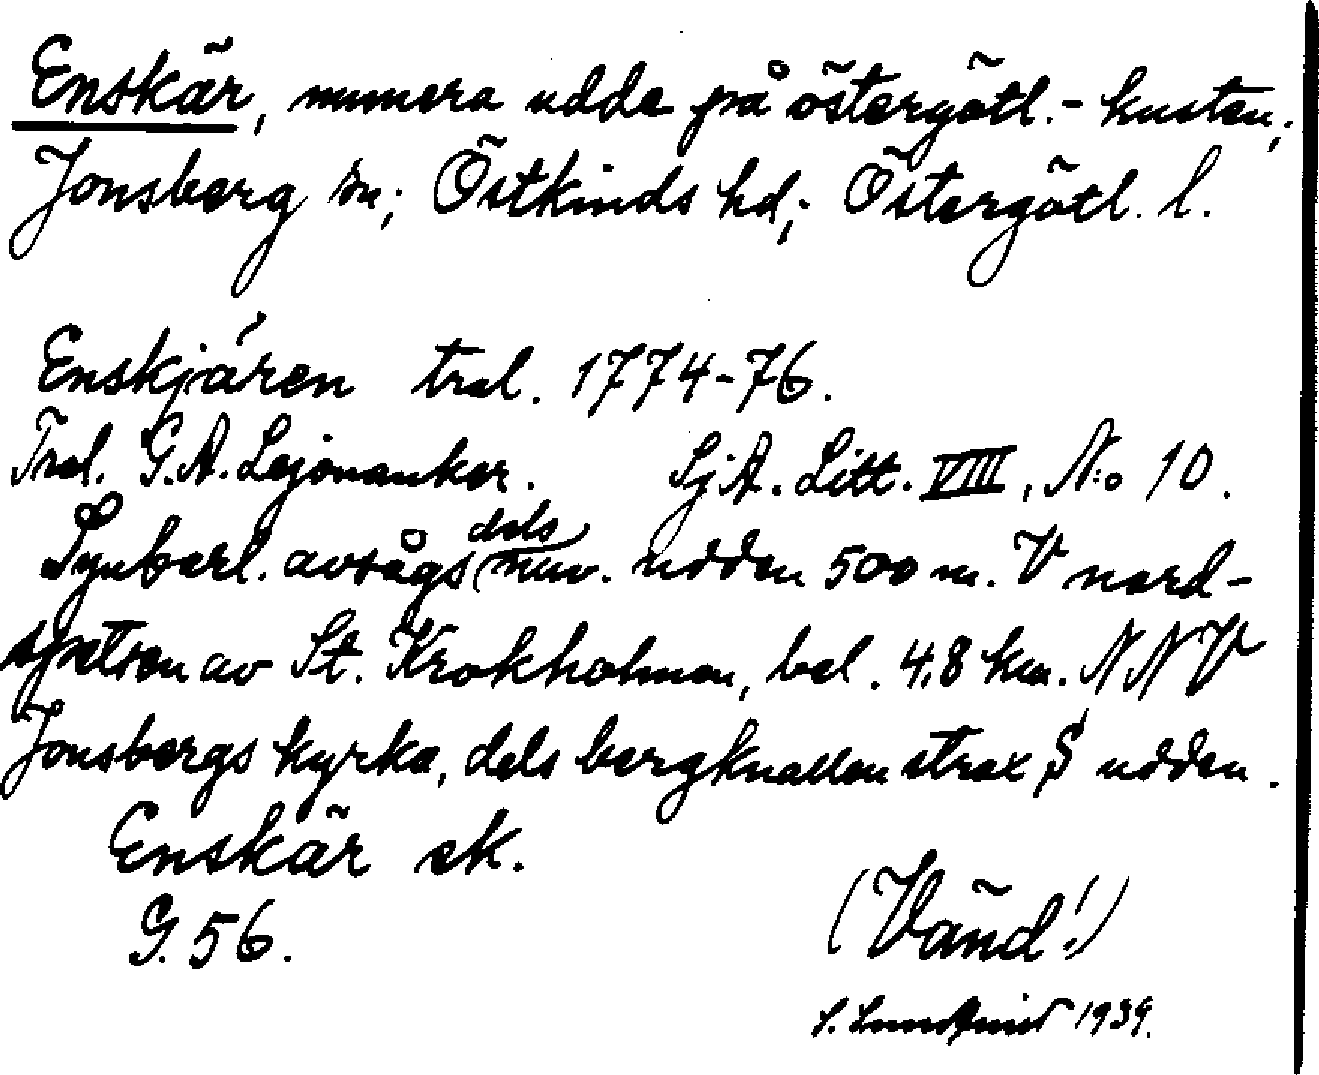 Enskär, numera udde på östergötl.-kusten;
Jonsberg sn; Östkinds hd; Östergötl. l.
Enskjären tral. 1774-76.
Tral. G.A. Lejonanker. SjA. Litt. VIII, N:o 10.
Synbarl. avsågs dels nuv. udden 500 m. V nord-
spetsen av St. Krokholmen, bel. 4,8 km. NNV
Jonsbergs kyrka, dels bergknallen strax S udden.
Enskär ek.
G. 56.
(Vänd!)
S. Lundqvist 1939.